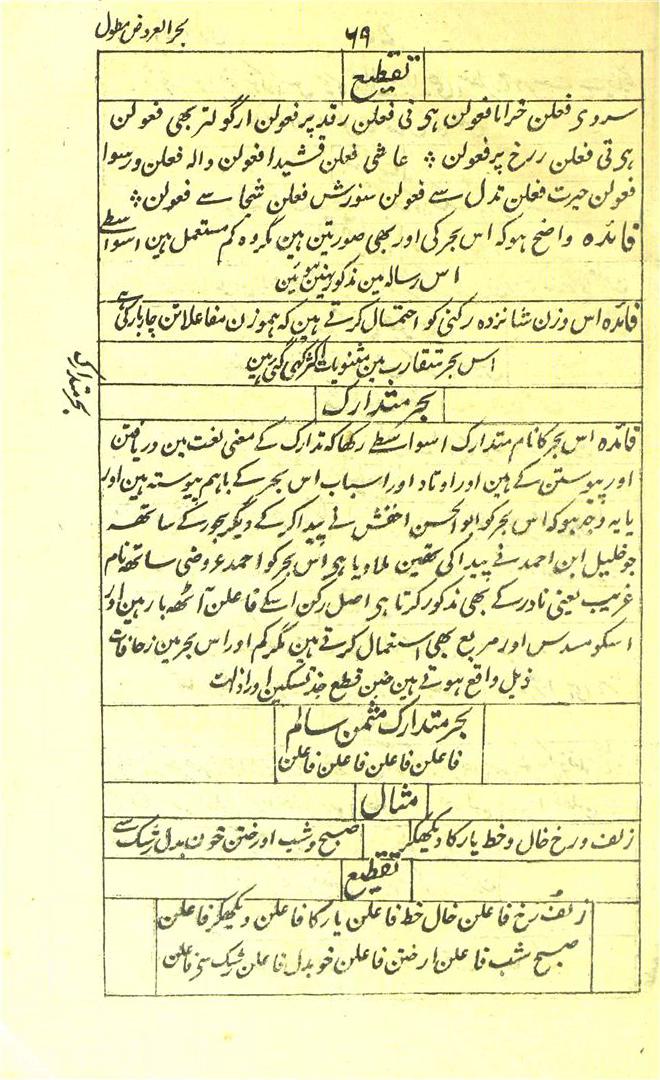 بحر العروض مطول
۶۹
تقطیع
سروی فعلن خرامافعولن ہونی فعلن رقد پر فعولن ارگولتربھی فعولن
ہوتی فعلن ررخ پر فعولن ؞ عاشی فعلن قشیدا فعولن والہ فعلن ورسوا
فعولن حیرت فعلن تدل سے فعولن سورش فعلن شجا سے فعولن ؞
فائدہ واضح ہو کہ اس بحر کی اور بھی صورتین ہین مگر وہ کم مستعمل ہین اسواسطے
اس رسالہ مین مذکور نہین ہوئین
فائدہ اس وزن شانزدہ رکنی کو احتمال کرتے ہین کہ ہموزن مفاعلاتن چار بار کی ہے
اس بحر متقارب مین مثنویات اکثر کہی گئی ہین
بحر متدارک
بحر متدارک
فائدہ اس بحر کا نام متدارک اسواسطے رکھا کہ تدارک کے معنی لغت مین دریافتن
اور پیوستن کے ہین اور اوتاد اور اسباب اس بحر کے باہم پیوستہ ہین اور
یا یہ وجہ ہو کہ اس بحر کو ابو الحسن اخفش نے پیدا کر کے دیگر بحور کے ساتھہ
جو خلیل ابن احمد نے پیدا کی تھین ملا دیا ہی اس بحر کو احمد عروضی ساتھہ نام
غریب یعنی نادر کے بھی مذکور کرتا ہی اصل رکن اسکے فاعلن آٹھہ بار ہین اور
اسکو مسدس اور مربع بھی استعمال کرتے ہین مگر کم اور اس بحر مین زحافات
ذیل واقع ہوتے ہین خبن قطع حذذ تسکین اور اذالت
بحر متدارک مثمن سالم
فاعلن فاعلن فاعلن فاعلن
مثال
زلف و رخ خال و خط یار کا دیکھکر صبح و شب اور ختن خون بدل رشک سے
تقطیع
زلف رخ فاعلن خال خط فاعلن یار کا فاعلن دیکھکر فاعلن
صبح شب فاعلن ارختن فاعلن خوبدل فاعلن رشک سی فاعلن